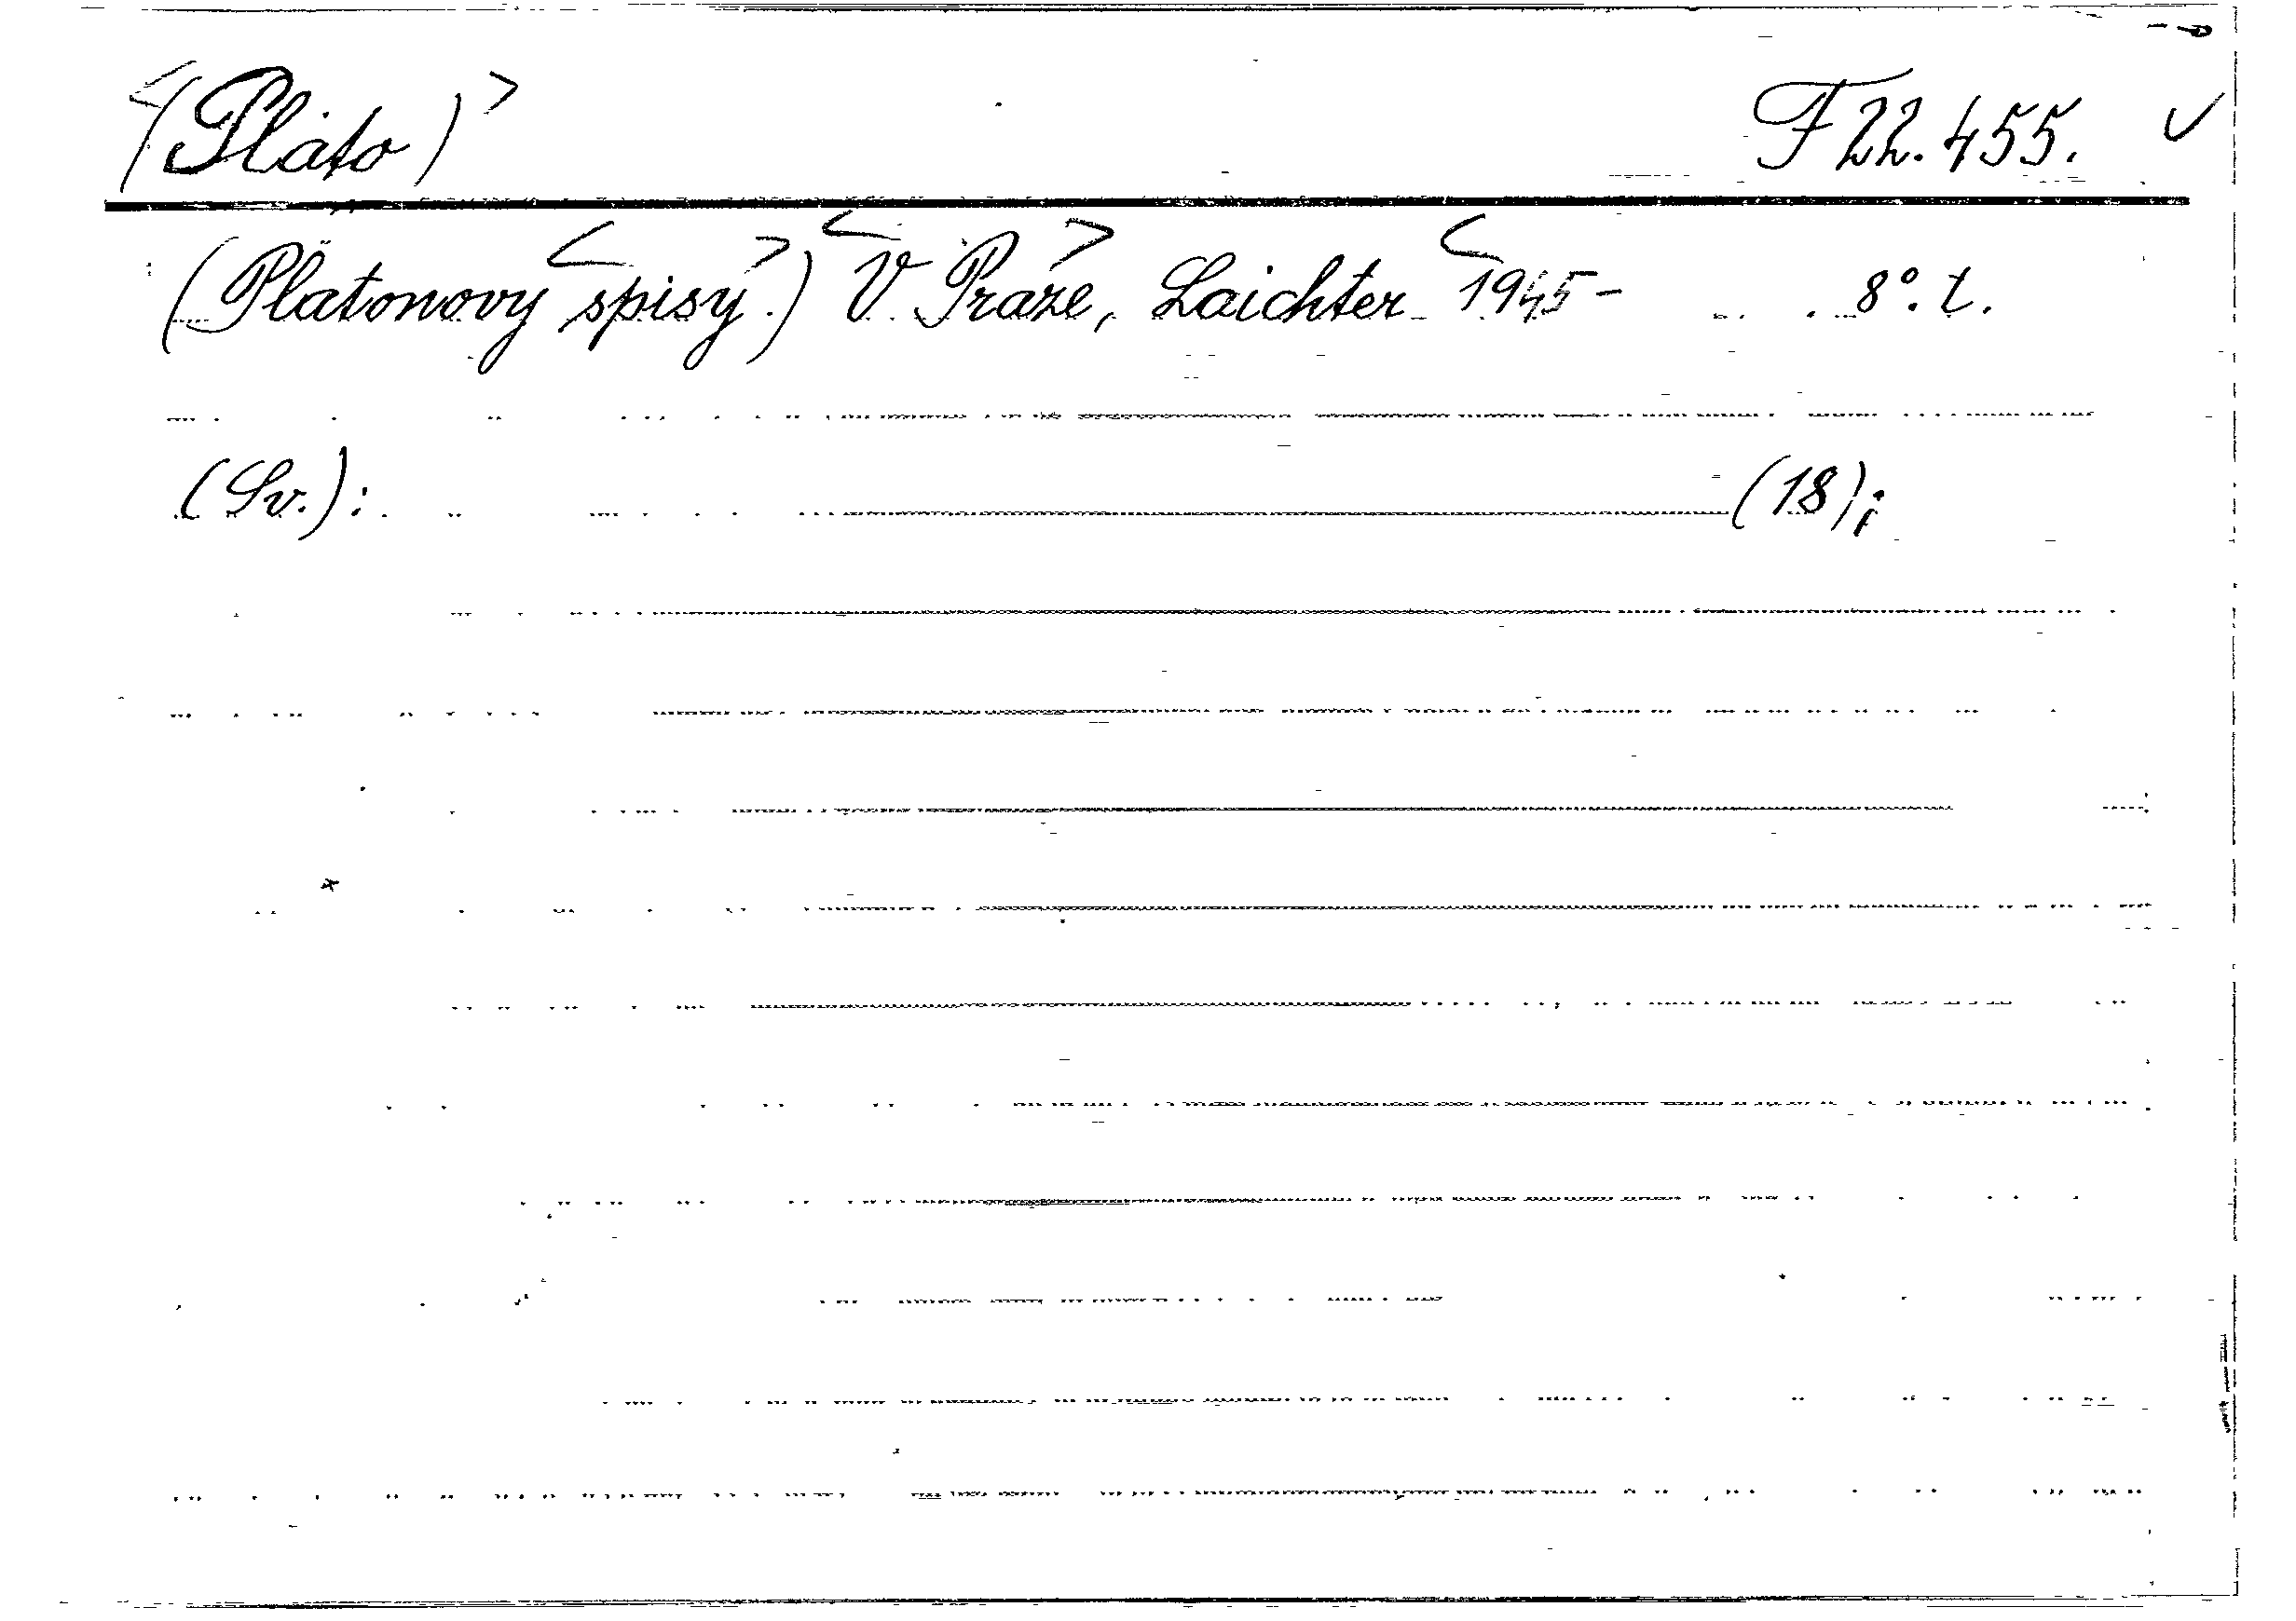 <(Plato)> F 22.455. ✓
(Platonovy <spisy.>) <V Praze,> Laichter <1945- 8°. t.
(Sv.): (18);